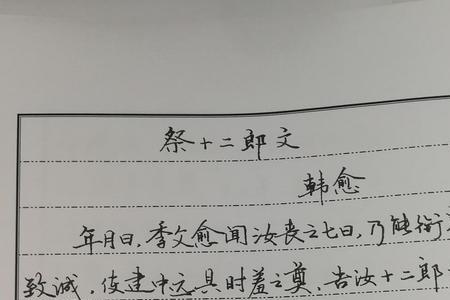 祭十二郎文
韩愈
年月日，季父愈闻汝丧之七日，乃能衔
致诚，使建中远具时羞之奠，告汝十二郎